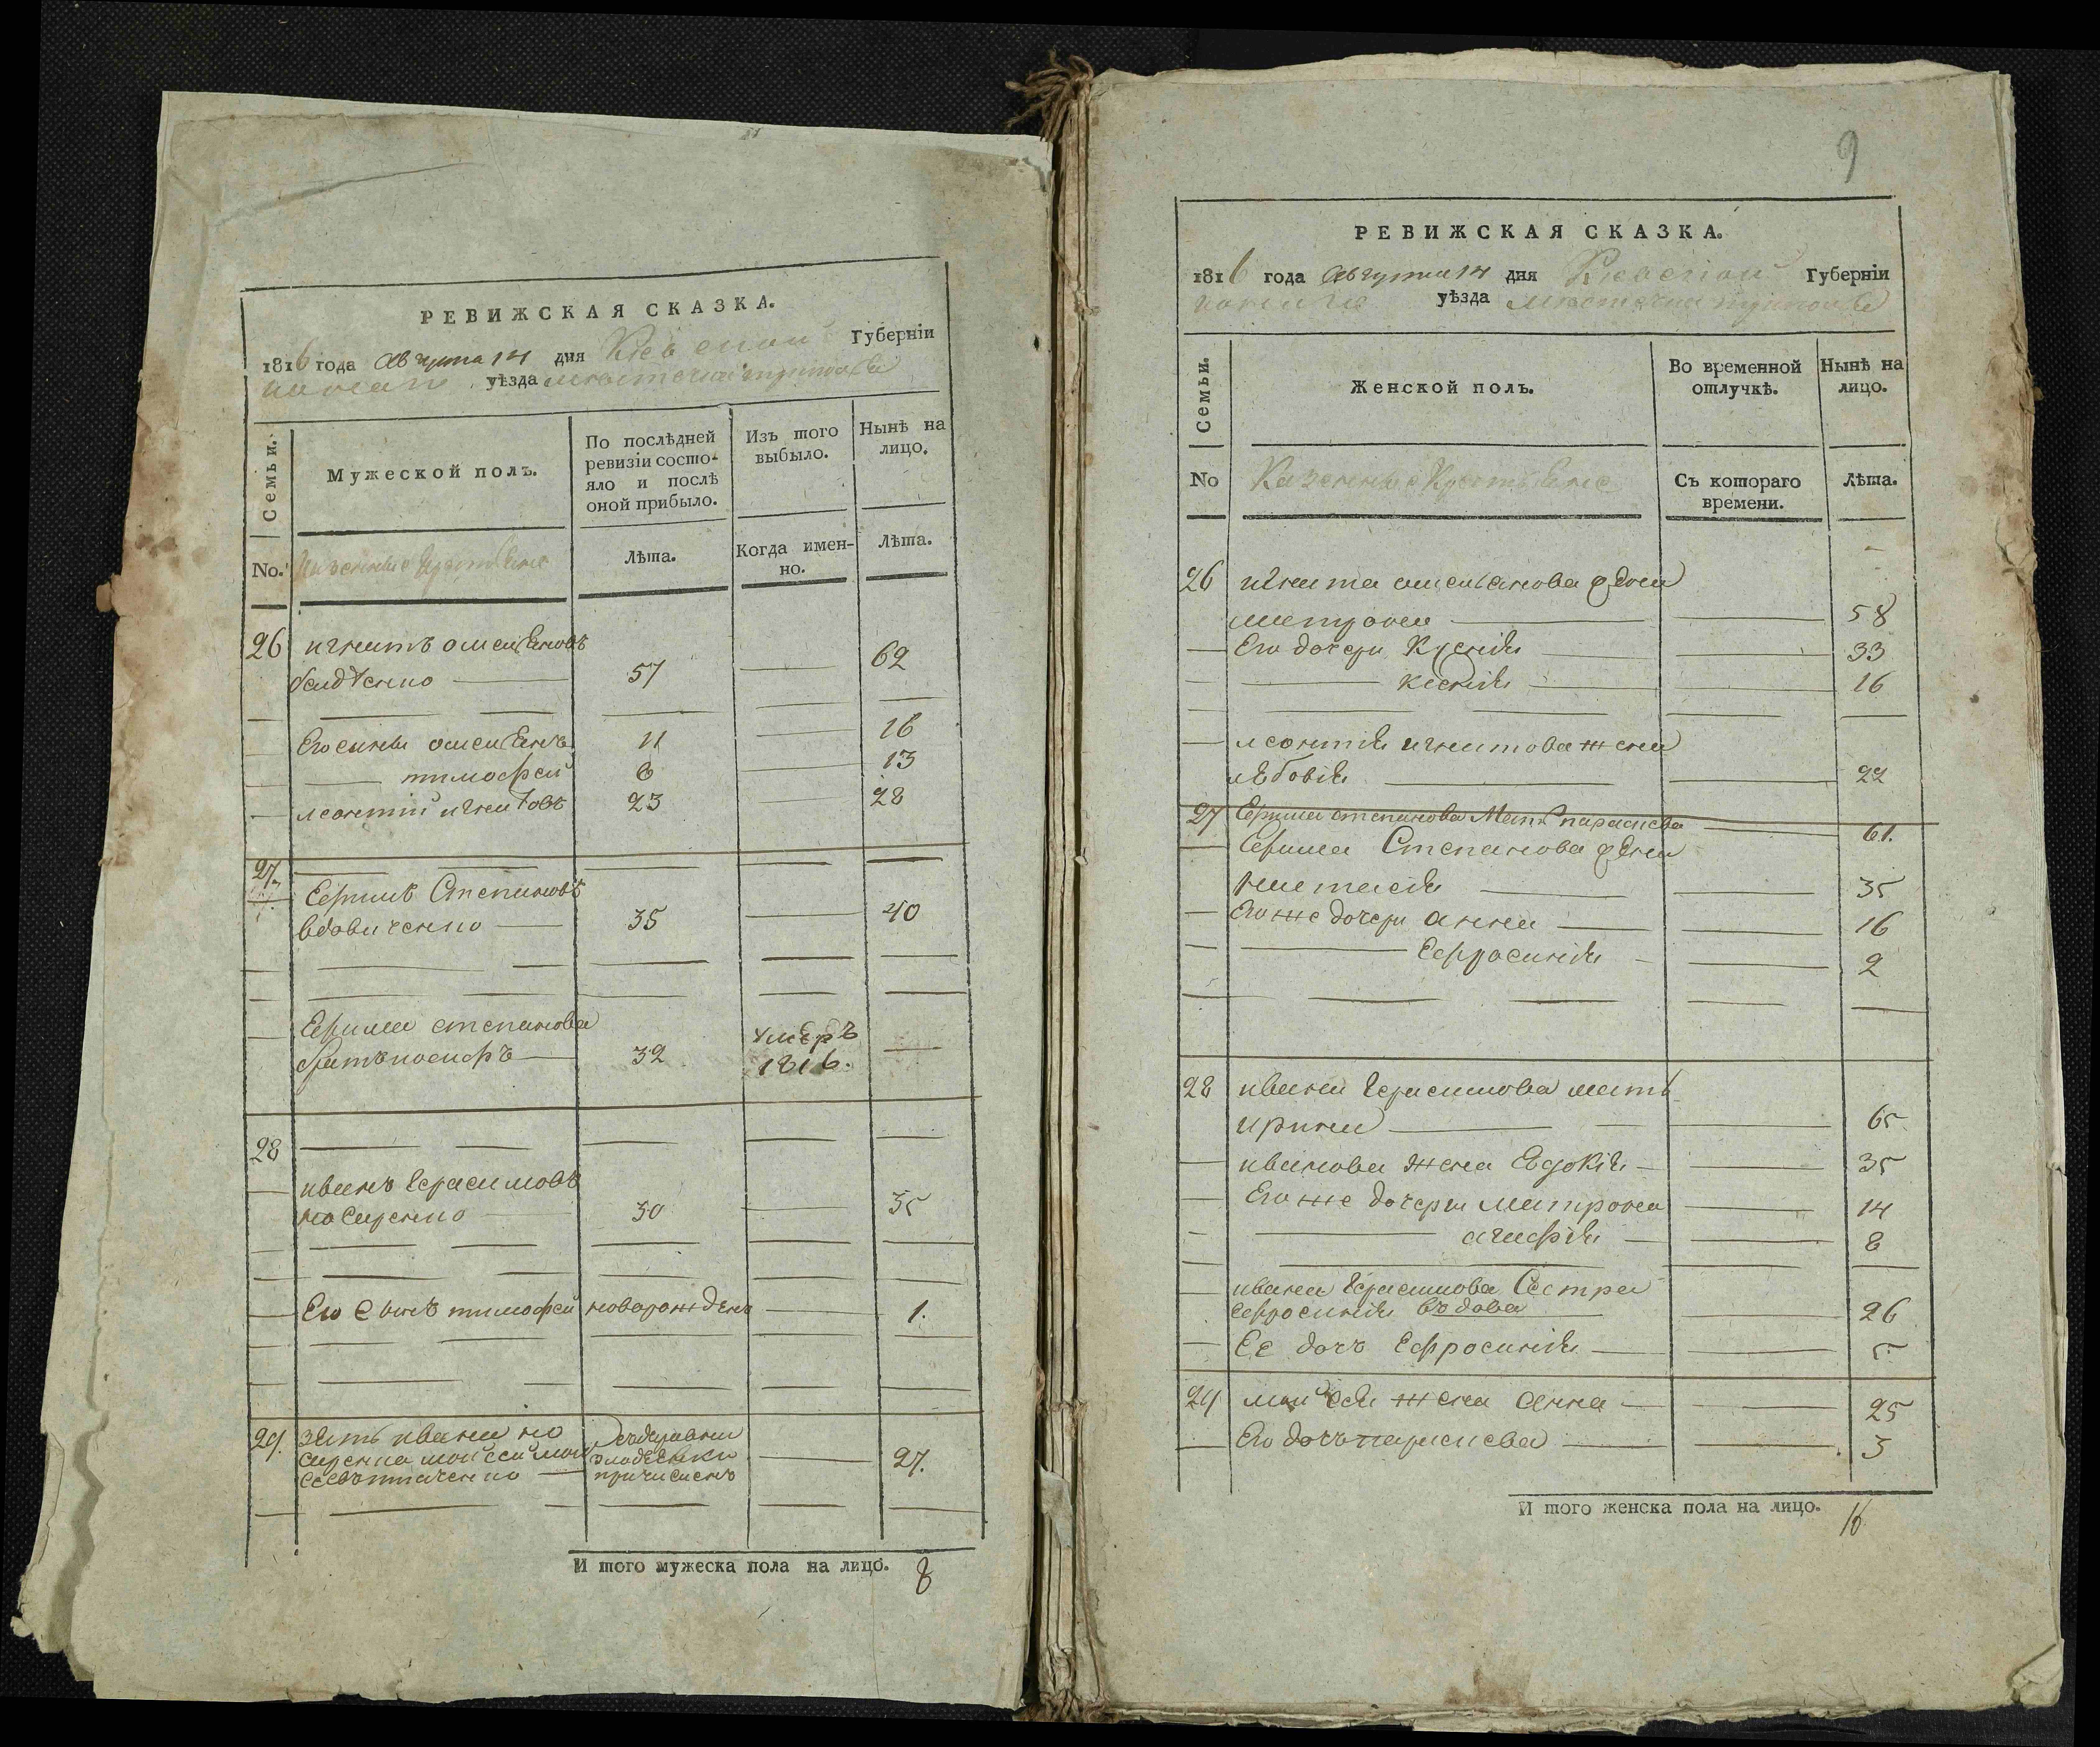 РЕВИЖСКАЯ СКАЗКА.
1816 года Августа 14 дня Киевской Губерніи
уѣзда местечка триполья
Семьи.
Мужеской полъ.
По послѣдней ревизіи состояло и послѣ оной прибыло.
Изъ того выбыло.
Нынѣ на лицо.
No. Казенные Крестьяне
Лѣта.
Когда именно.
Лѣта.
26 игнатъ омельяновъ
57 62
Его сыны омельянъ 11 16
тимофей 8 13
леонтій игнатовъ 23 28
27.
Ефимъ Степановъ
вдовиченко 35 40
Ефима степанова
братъ иосифъ 32 умеръ 1816.
28
иванъ Герасимовъ
30 35
Его Сынъ тимофей новорожденъ 1.
29. зять ивана но
сиренка мойсей мой
сеевъ ткаченко
причисленъ 27.
И того мужеска пола на лицо. 8
9
РЕВИЖСКАЯ СКАЗКА.
1816 года Августа 14 дня Киевской Губерніи
уѣзда местечка триполья
Семьи.
Женской полъ.
Во временной отлучкѣ.
Нынѣ на лицо.
No Казенные Крестьяне
Съ котораго времени.
Лѣта.
26 игната омельянова жона
матрона 58
Его дочери Ксенія 33
16
леонтія игнатова жена
любовія 22
27 Ефима степанова Мать параскева 61.
Ефима Степанова жена
настасія 35
Его же дочери анна 16
Ефросинія 2
28 ивана Герасимова мать
ирина 65
иванова жена Евдокія 35
Его же дочери матрона 14
агафія 8
ивана Герасимова Сестра
ефросинія вдова 26
Ее дочъ Ефросинія 5
29 мойсея жена анна 25
Его дочъ параскева 3
И того женска пола на лицо. 16